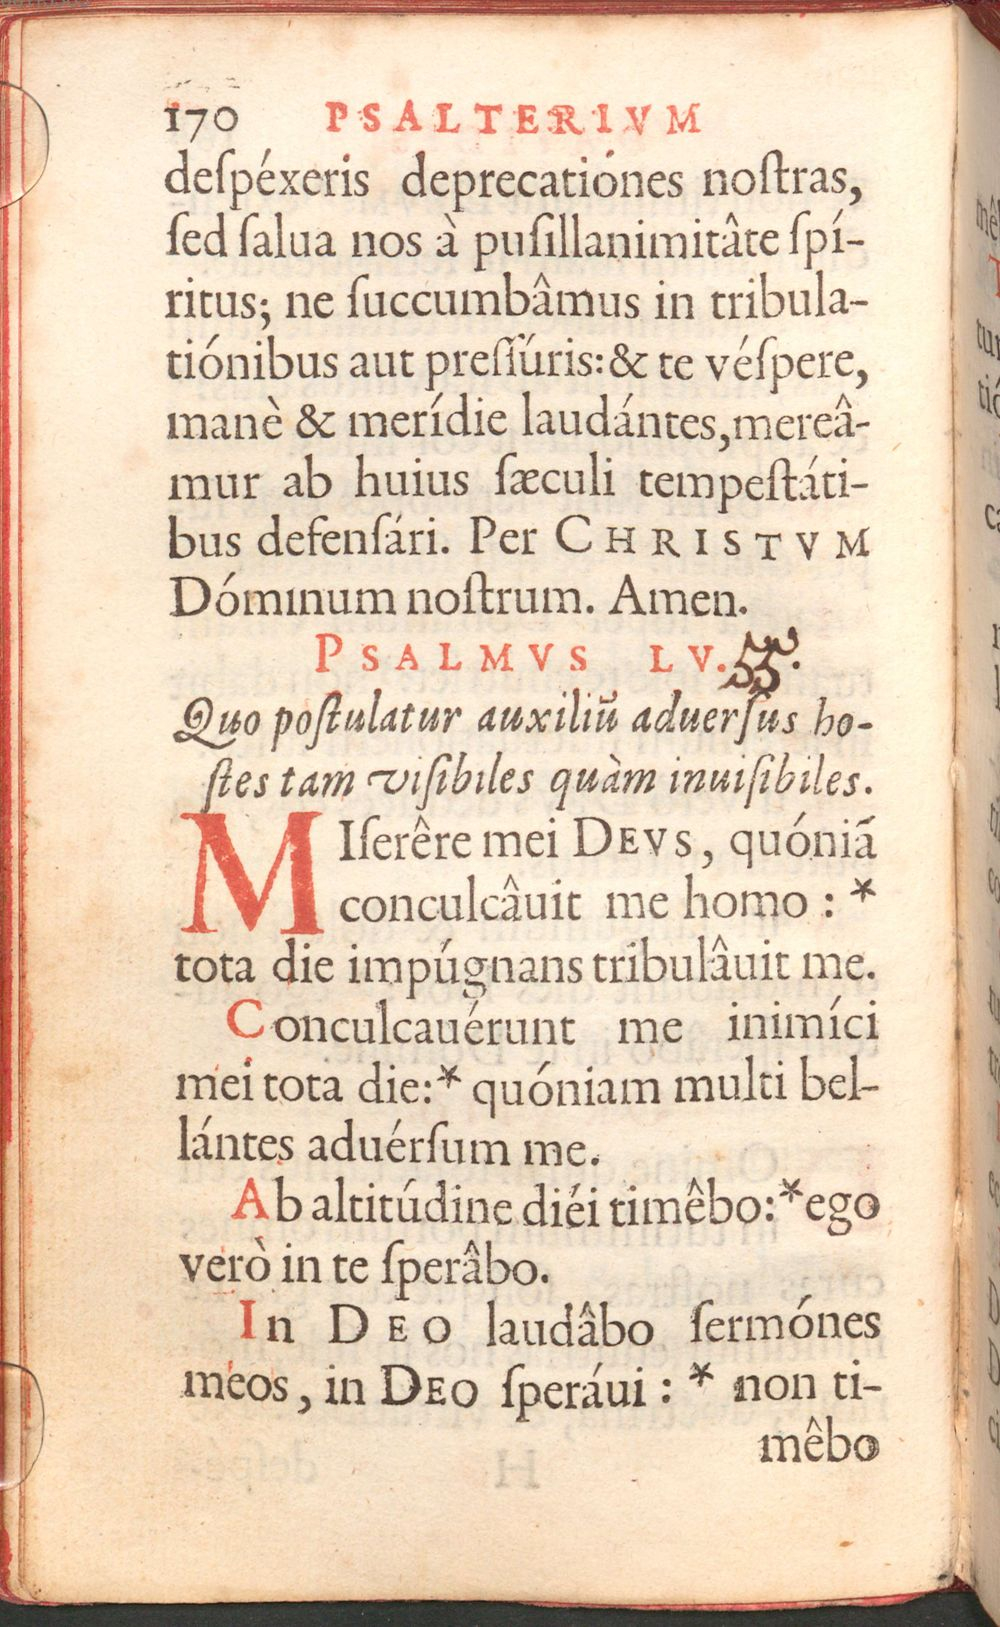 170 PSALTERIVM
deſpéxeris deprecatiónes noſtras,
ſed ſalua nos à puſillanimitâte ſpí-
ritus; ne ſuccumbâmus in tribula-
tiónibus aut preſſúris: & te véſpere,
manè & merídie laudántes, mereâ-
mur ab huius ſæculi tempeſtáti-
bus defenſári. Per CHRISTVM
Dóminum noſtrum. Amen.
PSALMVS LV. 55.
Quo poſtulatur auxiliū aduerſus ho-
ſtes tam viſibiles quàm inuiſibiles.
MIſerêre mei DEVS, quóniā
conculcâuit me homo : *
tota die impúgnans tribulâuit me.
Conculcauérunt me inimíci
mei tota die: * quóniam multi bel-
lántes aduérſum me.
Ab altitúdine diéi timêbo: * ego
verò in te ſperâbo.
In DEO laudâbo ſermónes
meos, in DEO ſperáui : * non ti-
mêbo